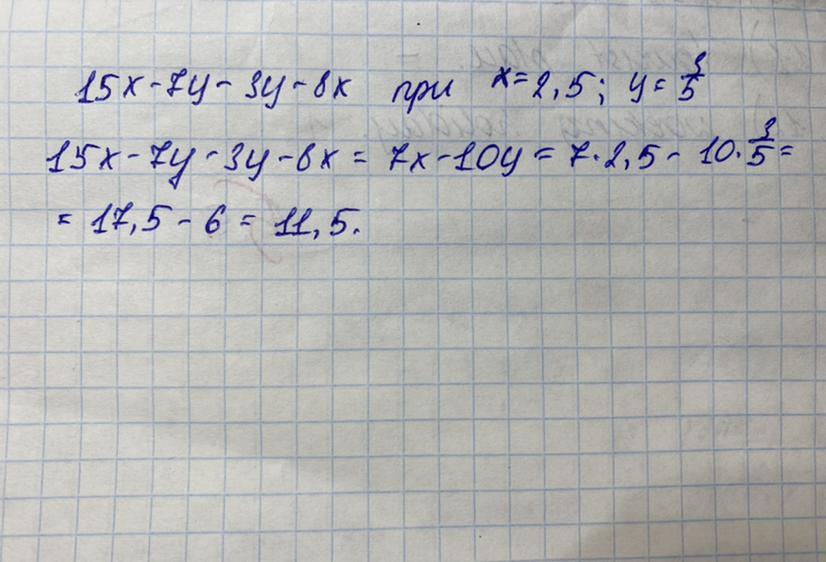 15x-7y-3y-8x при x=2,5; y=3/5
15x-7y-3y-8x=7x-10y=7·2,5-10·3/5=
=17,5-6=11,5.